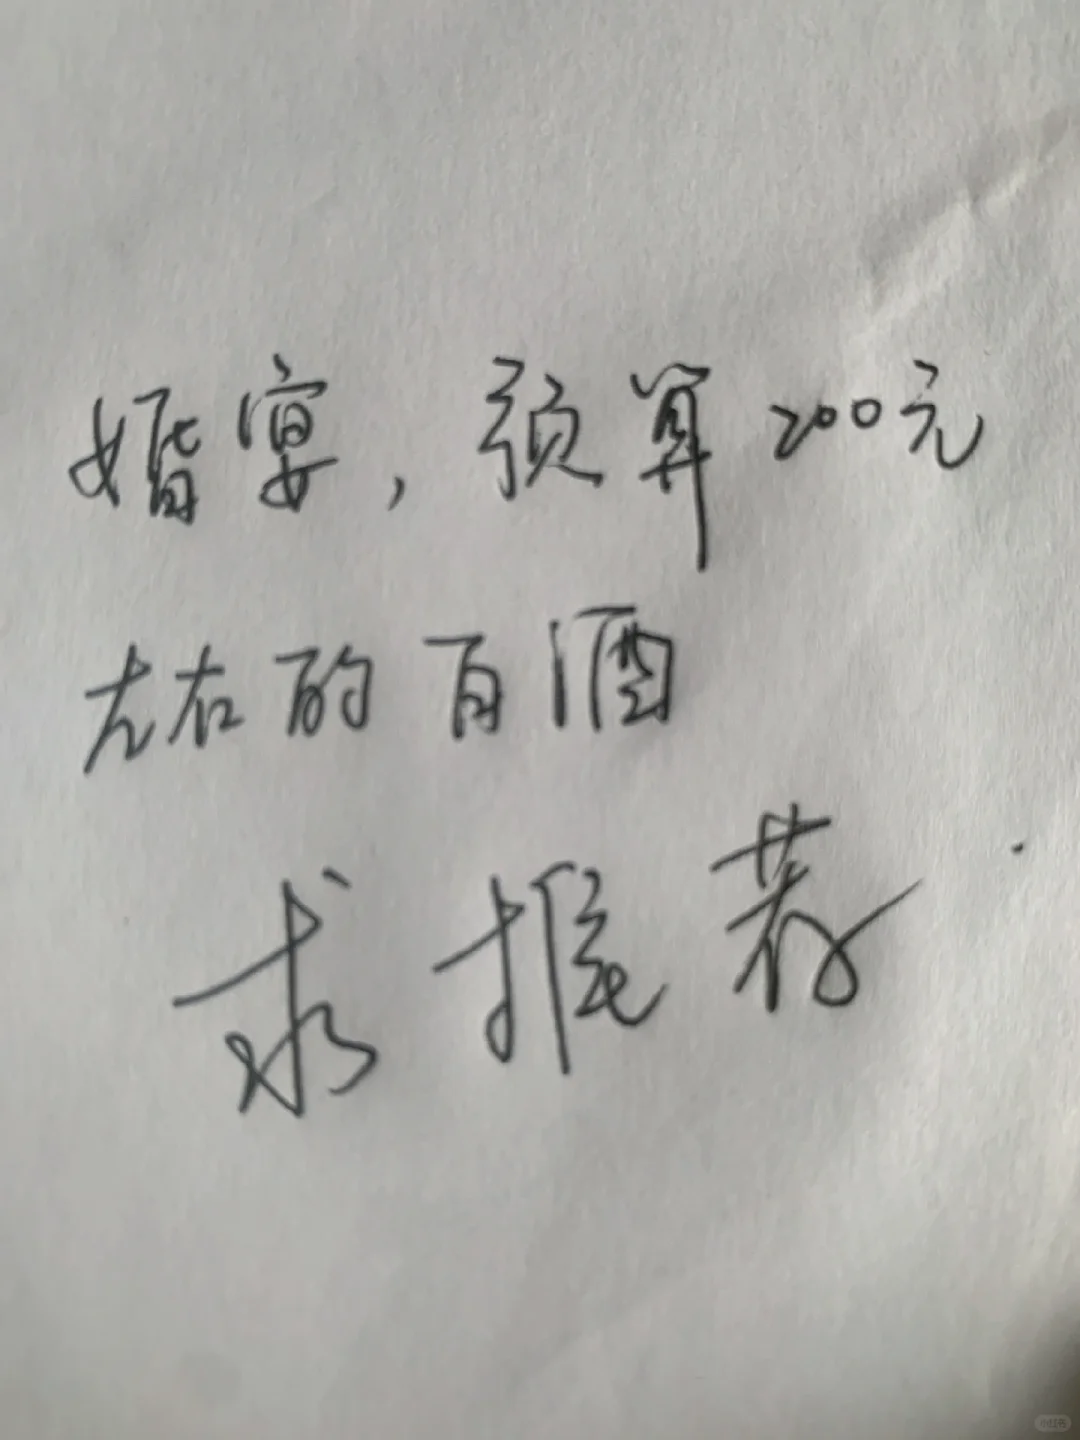 婚宴，预算200元
左右的白酒
求推荐
小红书